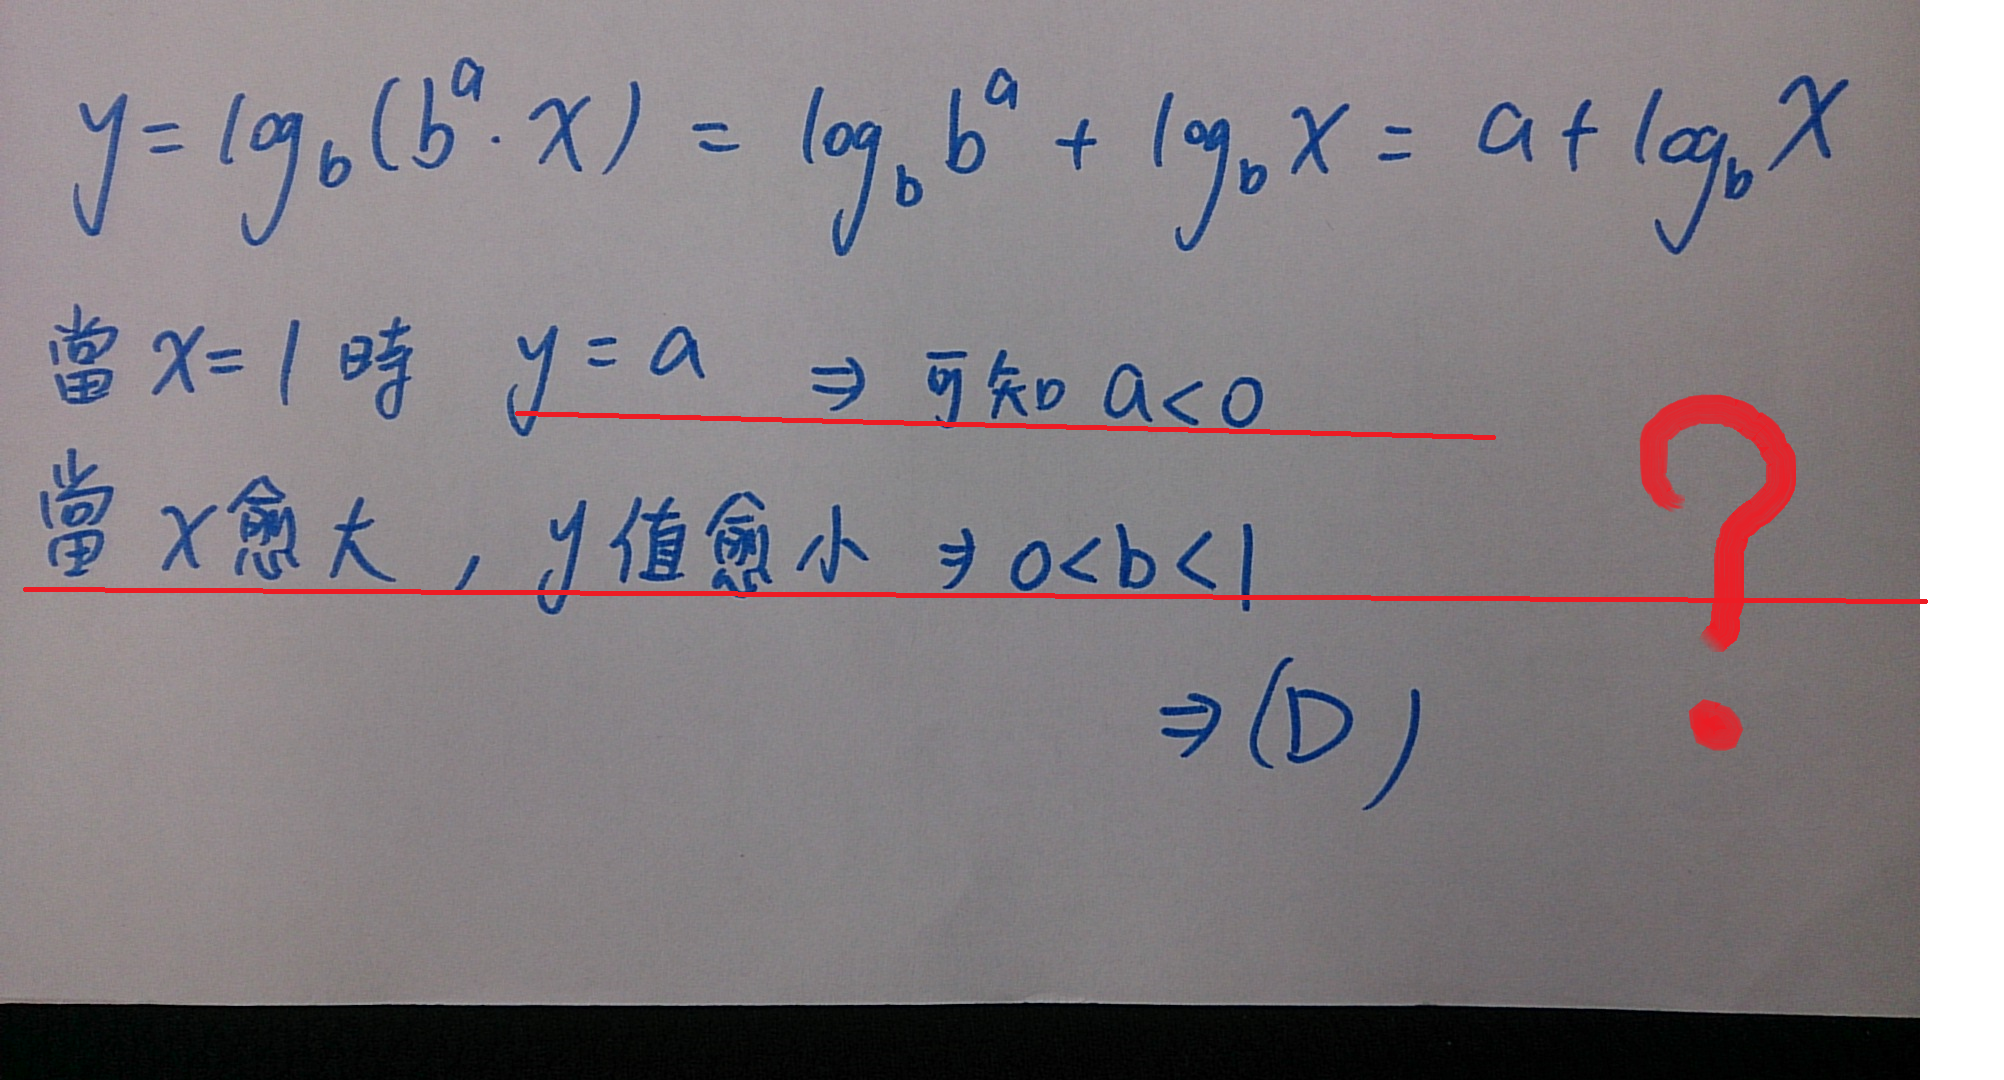 y = log_b(b^a · x) = log_b b^a + log_b x = a + log_b x
當 x = 1 時 y = a ⇒ 可知 a < 0
當 x 愈大 , y 值愈小 ⇒ 0 < b < 1
⇒ (D)
?